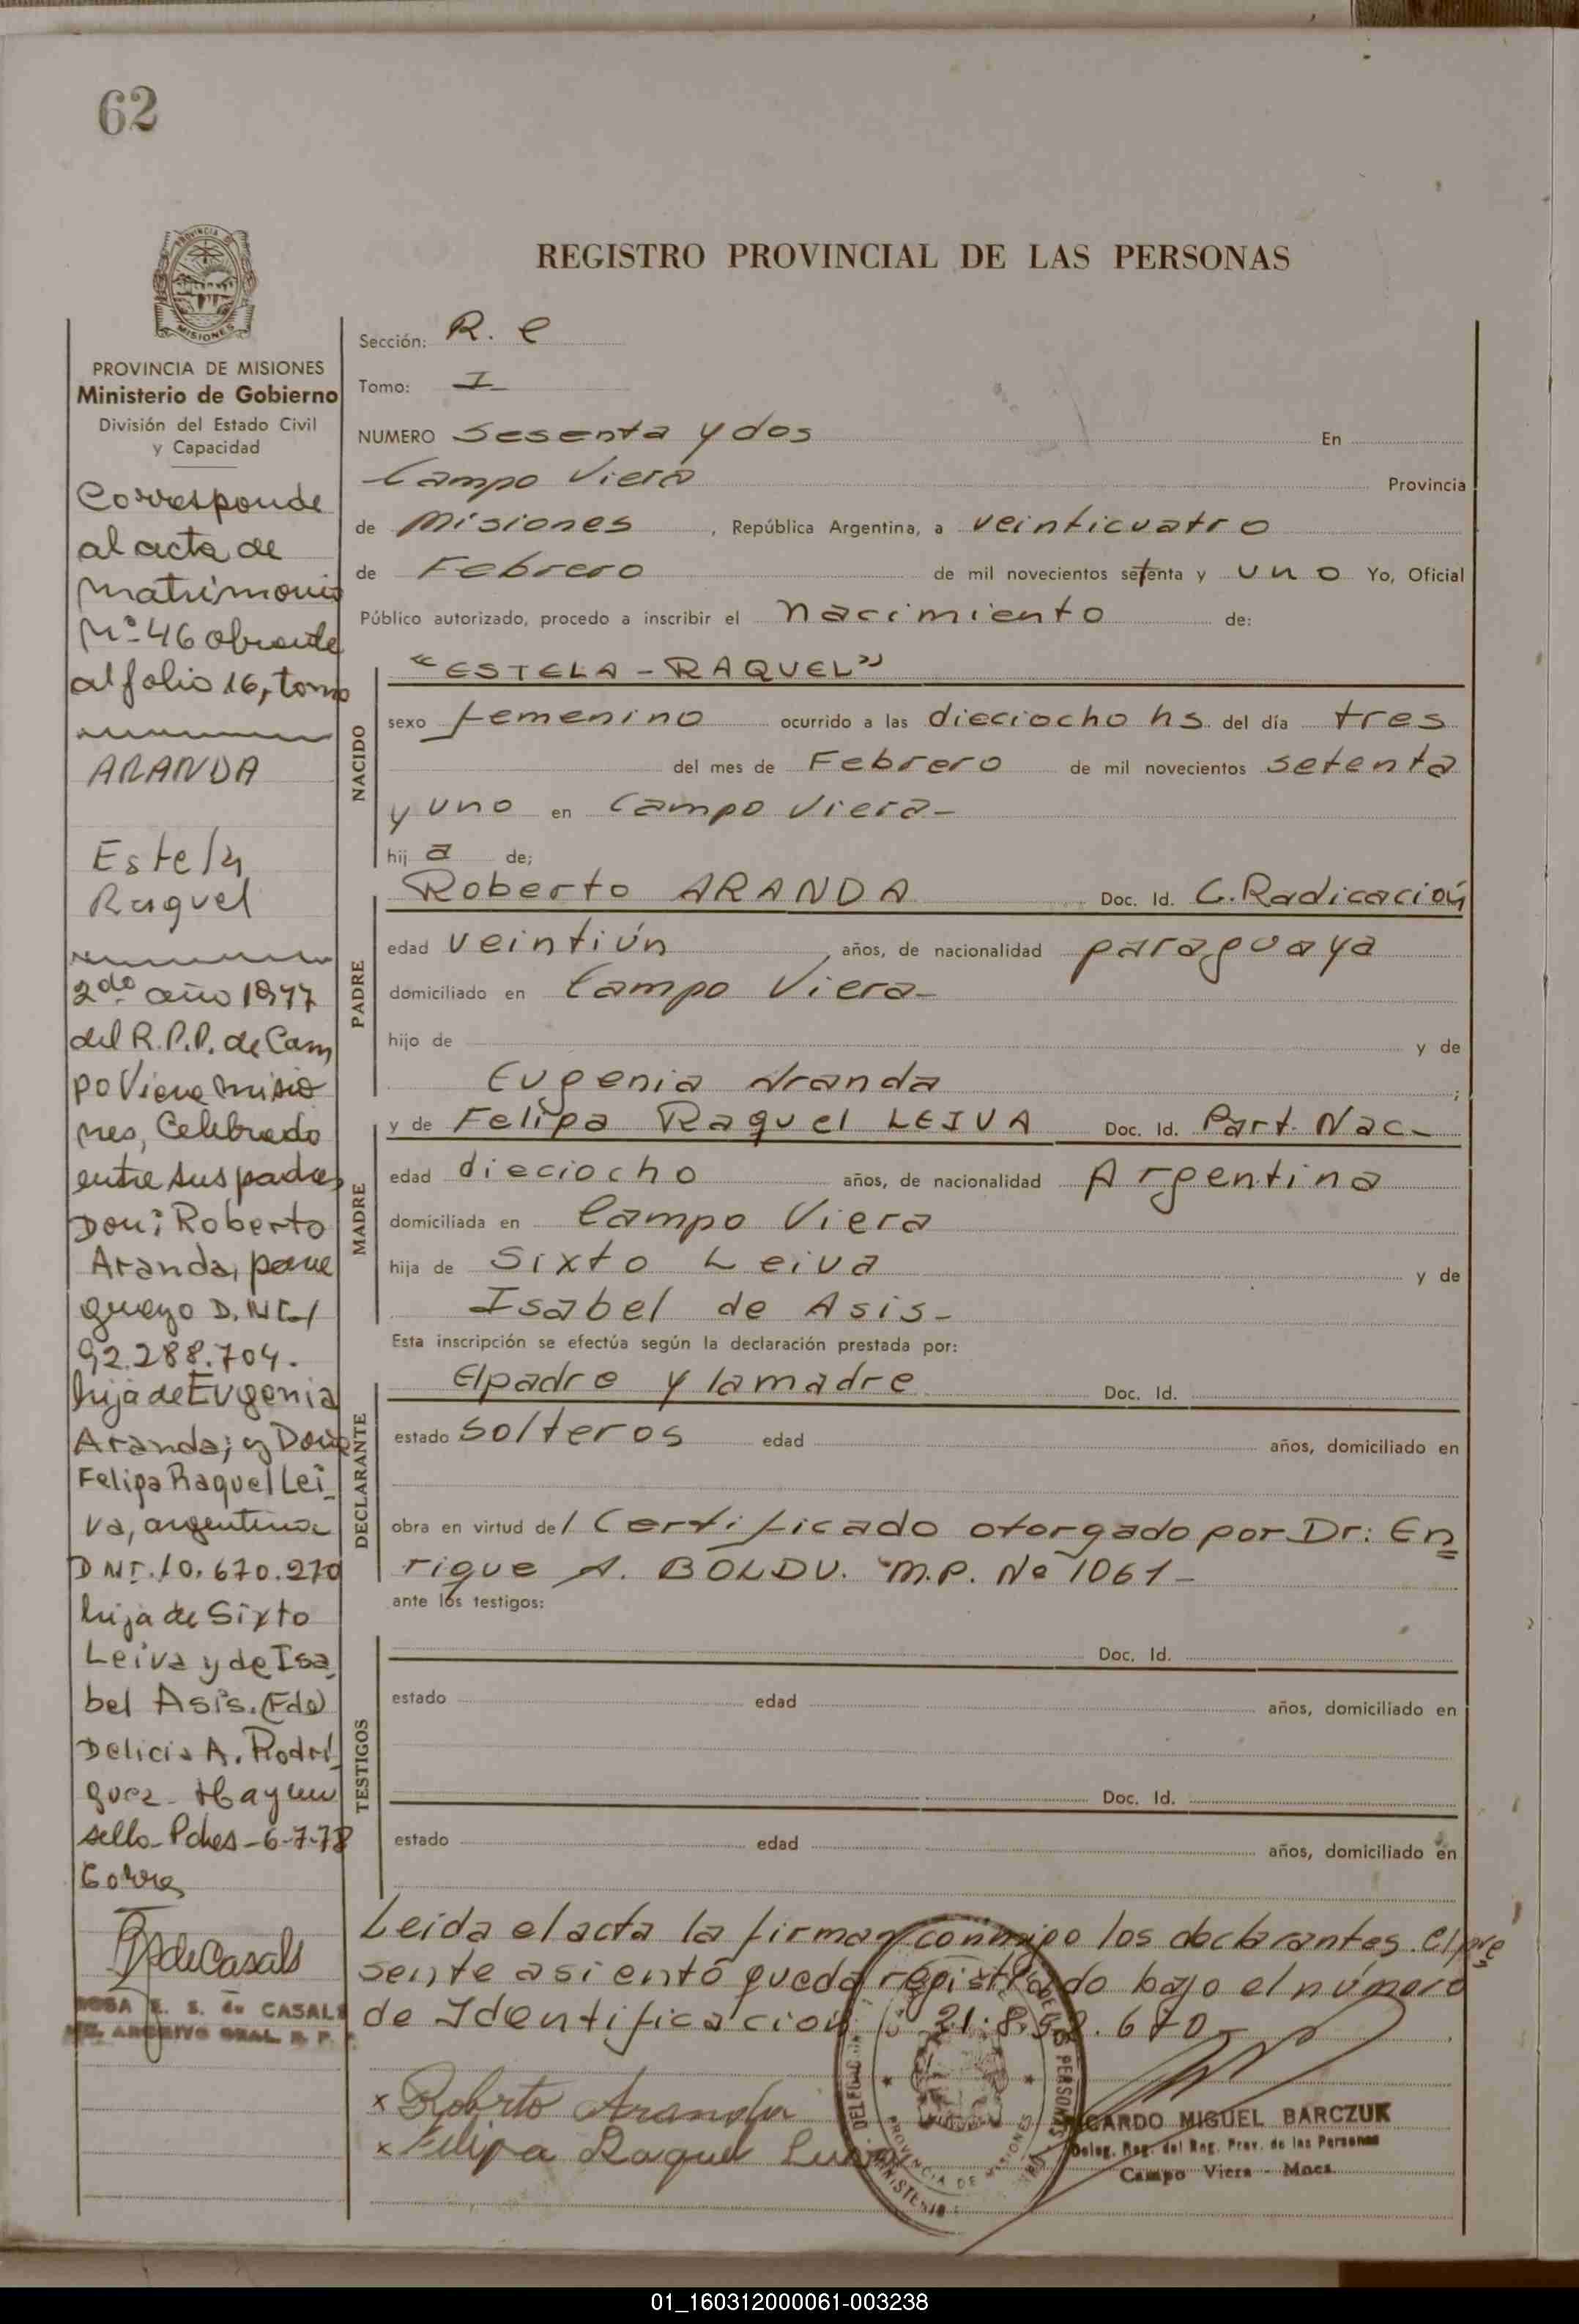 62
PROVINCIA DE MISIONES
Ministerio de Gobierno
División del Estado Civil
y Capacidad
Corresponde
al acta de
matrimonio
Nº 46 obrante
al folio 16, tomo
ARANDA
Estela
Raquel
2do año 1977
del R.P.P. de Cam
po Viera Misio
nes, Celebrado
entre sus padres
Don: Roberto
Aranda, para
guayo D.N.I.
92.288.704.
hijo de Eugenia
Aranda; y Doña
Felipa Raquel Lei_
va, argentina
DNI. 10.670.270
hija de Sixto
Leiva y de Isa_
bel Asis. (Fdo)
Delicia A. Rodrí_
guez. Hay un
sello_ Pdas_6-7-78
de Casals
ROSA E. S. de CASALS
ARCHIVO GRAL. R. P.
REGISTRO PROVINCIAL DE LAS PERSONAS
Sección: R. C
Tomo: I
NUMERO Sesenta y dos En
Campo Viera Provincia
de Misiones, República Argentina, a veinticuatro
de Febrero de mil novecientos setenta y uno Yo, Oficial
Público autorizado, procedo a inscribir el nacimiento de:
NACIDO
"ESTELA - RAQUEL"
sexo femenino ocurrido a las dieciocho hs. del día tres
del mes de Febrero de mil novecientos setenta
y uno en Campo Viera-
hij a de;
PADRE
Roberto ARANDA Doc. Id. C. Radicación
edad veintiún años, de nacionalidad paraguaya
domiciliado en Campo Viera-
hijo de y de
Eugenia Aranda ;
MADRE
y de Felipa Raquel LEIVA Doc. Id. Part. Nac-
edad dieciocho años, de nacionalidad Argentina
domiciliada en Campo Viera
hija de Sixto Leiva y de
Isabel de Asis-
Esta inscripción se efectúa según la declaración prestada por:
DECLARANTE
El padre y la madre Doc. Id.
estado solteros edad años, domiciliado en
obra en virtud del Certificado otorgado por Dr: En
rique A. BOLDU. M.P. Nº 1061-
ante los testigos:
TESTIGOS
Doc. Id.
estado edad años, domiciliado en
Doc. Id.
estado edad años, domiciliado en
Leida el acta la firman conmigo los declarantes. El pre
sente asiento queda registrado bajo el número
de Identificación 21.8
x Roberto Aranda
x Felipa Raquel
RICARDO MIGUEL BARCZUK
Deleg. Reg. del Reg. Prov. de las Personas
Campo Viera - Mnes
PROVINCIA DE MISIONES
MINISTERIO
01_160312000061-003238